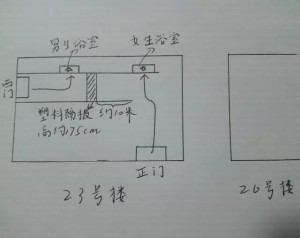 男生浴室
女生浴室
西门
塑料隔板
约10米
高约175cm
正门
23号楼
26号楼